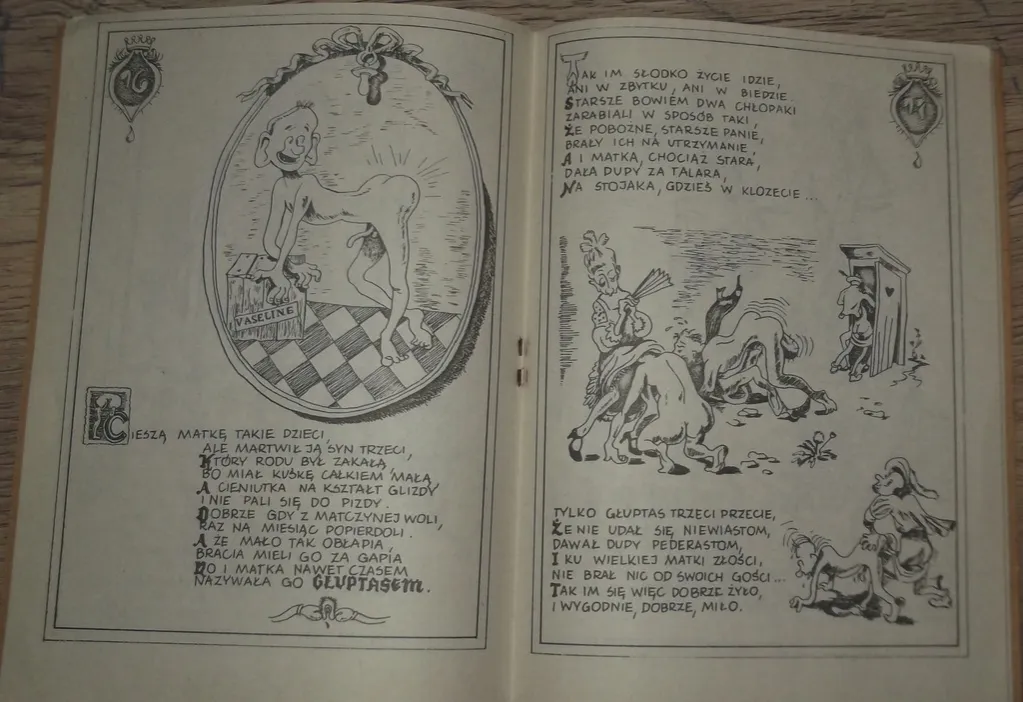 CIESZĄ MATKĘ TAKIE DZIECI,
ALE MARTWIŁ JĄ SYN TRZECI,
KTÓRY RODU BYŁ ZAKAŁĄ,
BO MIAŁ KUŚKĘ CAŁKIEM MAŁĄ
A CIENIUTKĄ NA KSZTAŁT GLIZDY
I NIE PALI SIĘ DO PIZDY.
DOBRZE GDY Z MATCZYNEJ WOLI,
RAZ NA MIESIĄC POPIERDOLI.
A ŻE MAŁO TAK OBŁAPIA,
BRACIA MIELI GO ZA GAPIA
NO I MATKA NAWET CZASEM
NAZYWAŁA GO GŁUPTASEM.
VASELINE
TAK IM SŁODKO ŻYCIE IDZIE,
ANI W ZBYTKU, ANI W BIEDZIE.
STARSZE BOWIEM DWA CHŁOPAKI
ZARABIALI W SPOSÓB TAKI,
ŻE POBOŻNE, STARSZE PANIE,
BRAŁY ICH NA UTRZYMANIE,
A I MATKA, CHOCIAŻ STARA,
DAŁA DUPY ZA TALARA,
NA STOJAKA, GDZIEŚ W KLOZECIE...
TYLKO GŁUPTAS TRZECI PRZECIE,
ŻE NIE UDAŁ SIĘ NIEWIASTOM,
DAWAŁ DUPY PEDERASTOM,
I KU WIELKIEJ MATKI ZŁOŚCI,
NIE BRAŁ NIC OD SWOICH GOŚCI...
TAK IM SIĘ WIĘC DOBRZE ŻYŁO,
I WYGODNIE, DOBRZE, MIŁO.